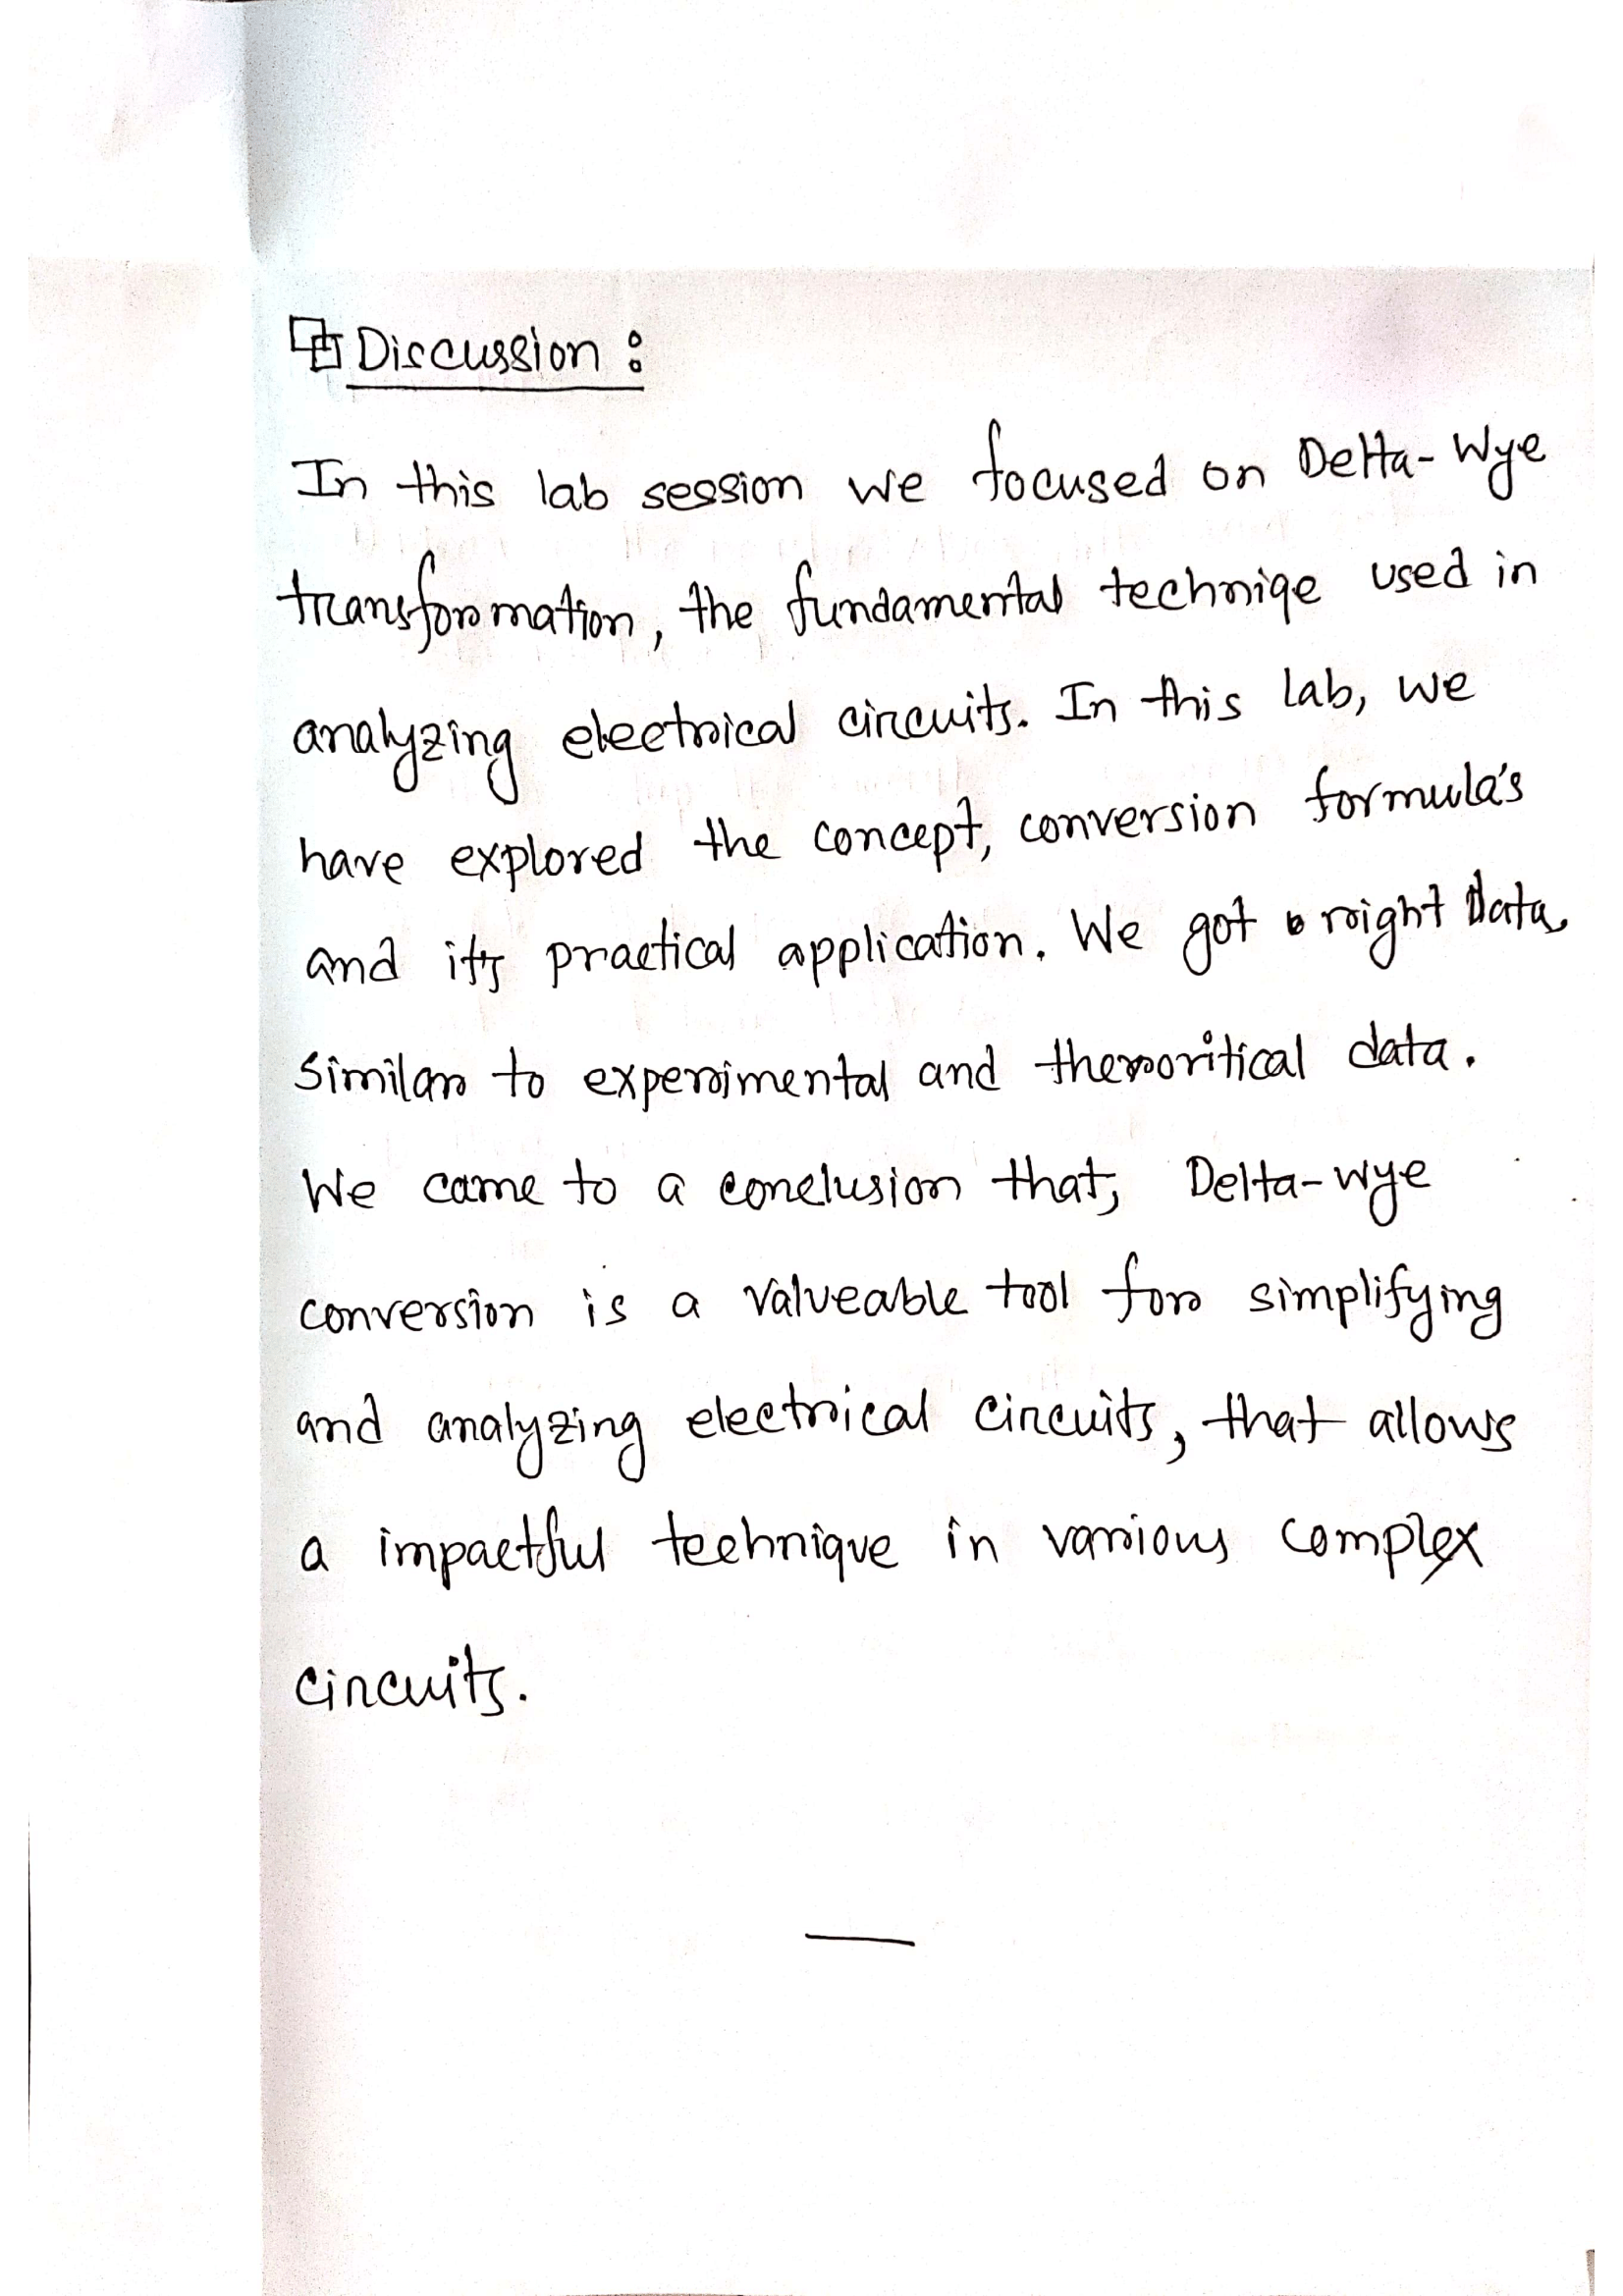 Discussion :
In this lab session we focused on Delta-Wye
transformation, the fundamental techniqe used in
analyzing electrical circuits. In this lab, we
have explored the concept, conversion formula's
and its practical application. We got right data,
similar to experimental and theoritical data.
We came to a conclusion that, Delta-wye
conversion is a valueable tool for simplifying
and analyzing electrical circuits, that allows
a impactful technique in various complex
circuits.